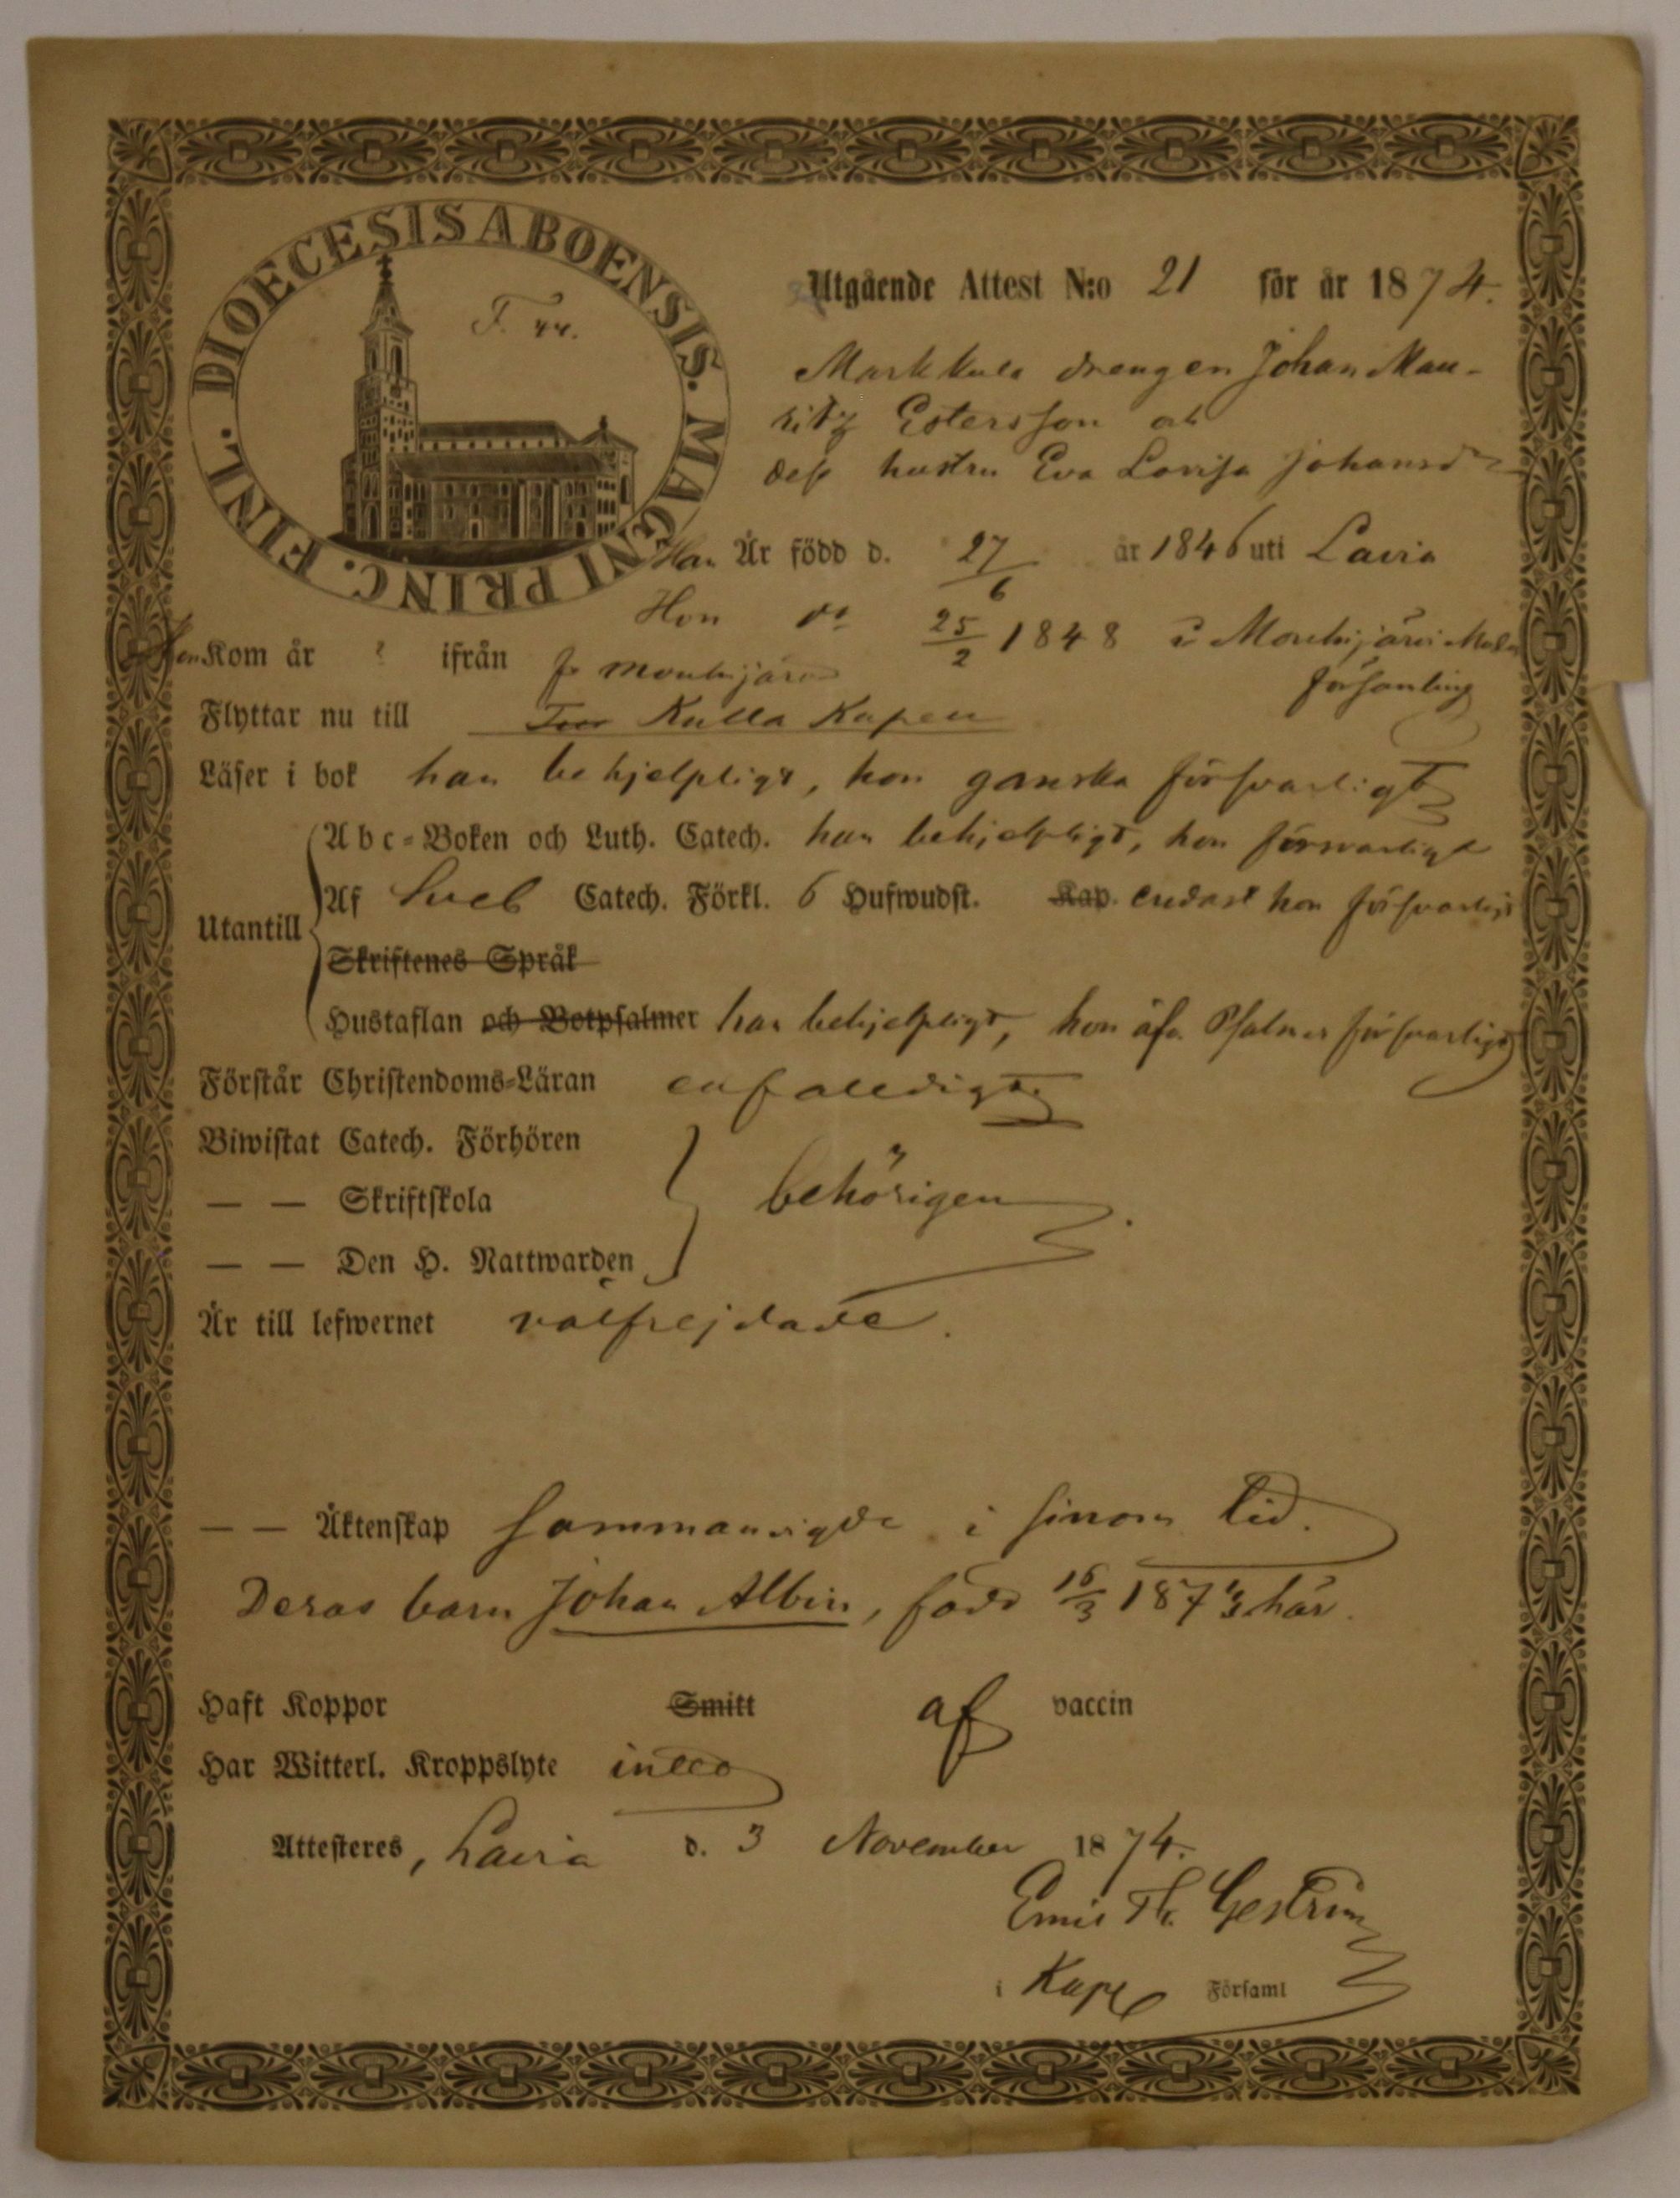 DIOECESIS ABOENSIS. MAGNI PRINC. FINL.
F. 44.
Utgående Attest N:o 21 för år 1874.
Markkula drengen Johan Mau-
ritz Estersson och
dess hustru Eva Lovisa Johansdr
Han Är född d. 27/6 år 1846 uti Lavia
Hon do 25/2 1848 i Mouhijärvi Moder
församling
Hon Kom år ? ifrån fr Mouhijärvi
Flyttar nu till Kulla Kapell
Läser i bok han behjelpligt, hon ganska försvarligt
Utantill
Abc-Boken och Luth. Catech. han behjelpligt, hon försvarligt
Af Sveb Catech. Förkl. 6 Hufwudst. Kap. endast hon försvarligt
Skriftenes Språk
Hustaflan och Botpsalmer han behjelpligt, hon äfv. Psalmer försvarligt
Förstår Christendoms-Läran enfaldigt
Biwistat Catech. Förhören
— — Skriftskola behörigen.
— — Den H. Nattwarden
Är till lefwernet välfrejdade.
— — Äktenskap sammanvigde i sinom tid.
Deras barn Johan Albin, född 16/3 1873 här.
Haft Koppor Smitt af vaccin
Har Witterl. Kroppslyte intet
Attesteres, Lavia d. 3 November 1874.
Emil Th. Gestrin
i Kapl Församl